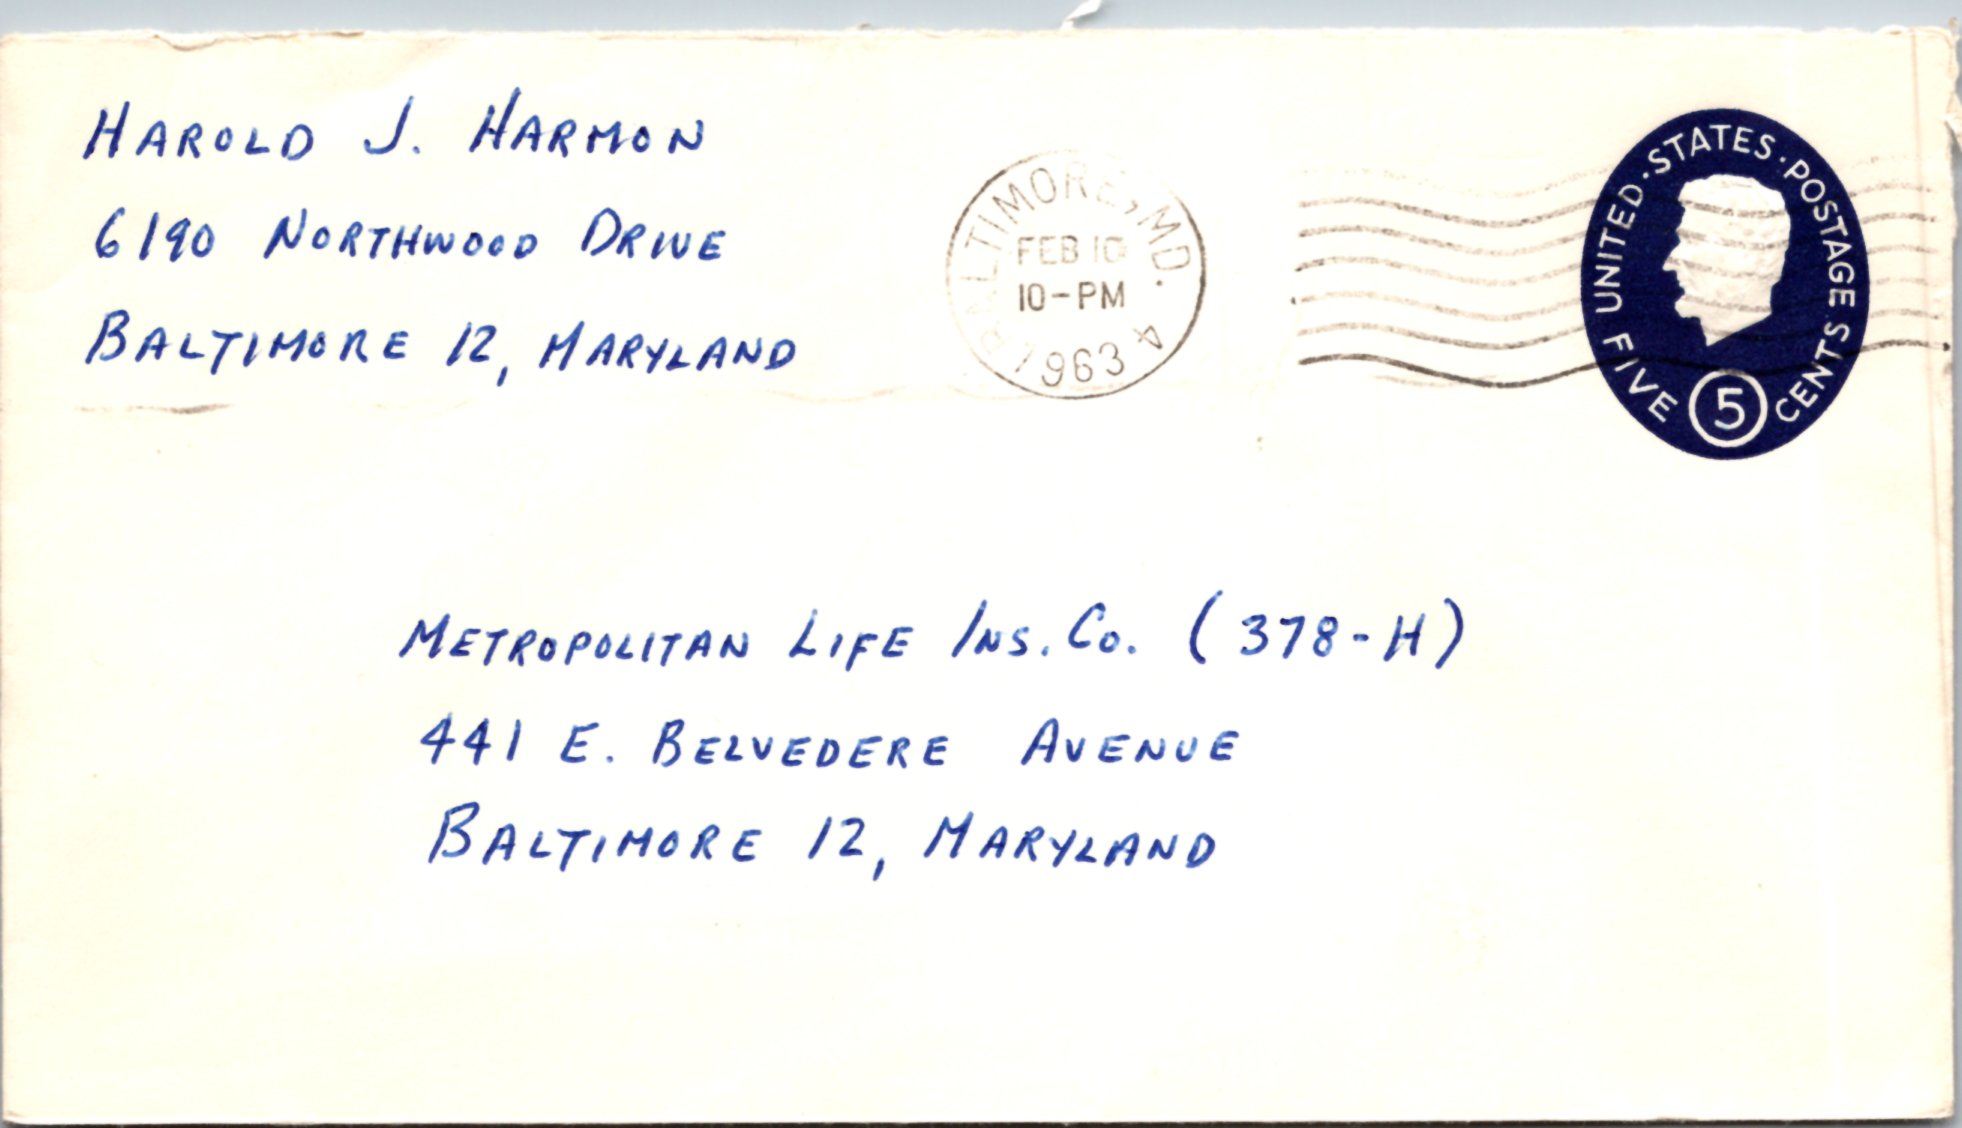 HAROLD J. HARMON
6190 NORTHWOOD DRIVE
BALTIMORE 12, MARYLAND
BALTIMORE, MD. 4
FEB 10
10-PM
1963
UNITED·STATES·POSTAGE
FIVE 5 CENTS
METROPOLITAN LIFE INS. CO. (378-H)
441 E. BELVEDERE AVENUE
BALTIMORE 12, MARYLAND